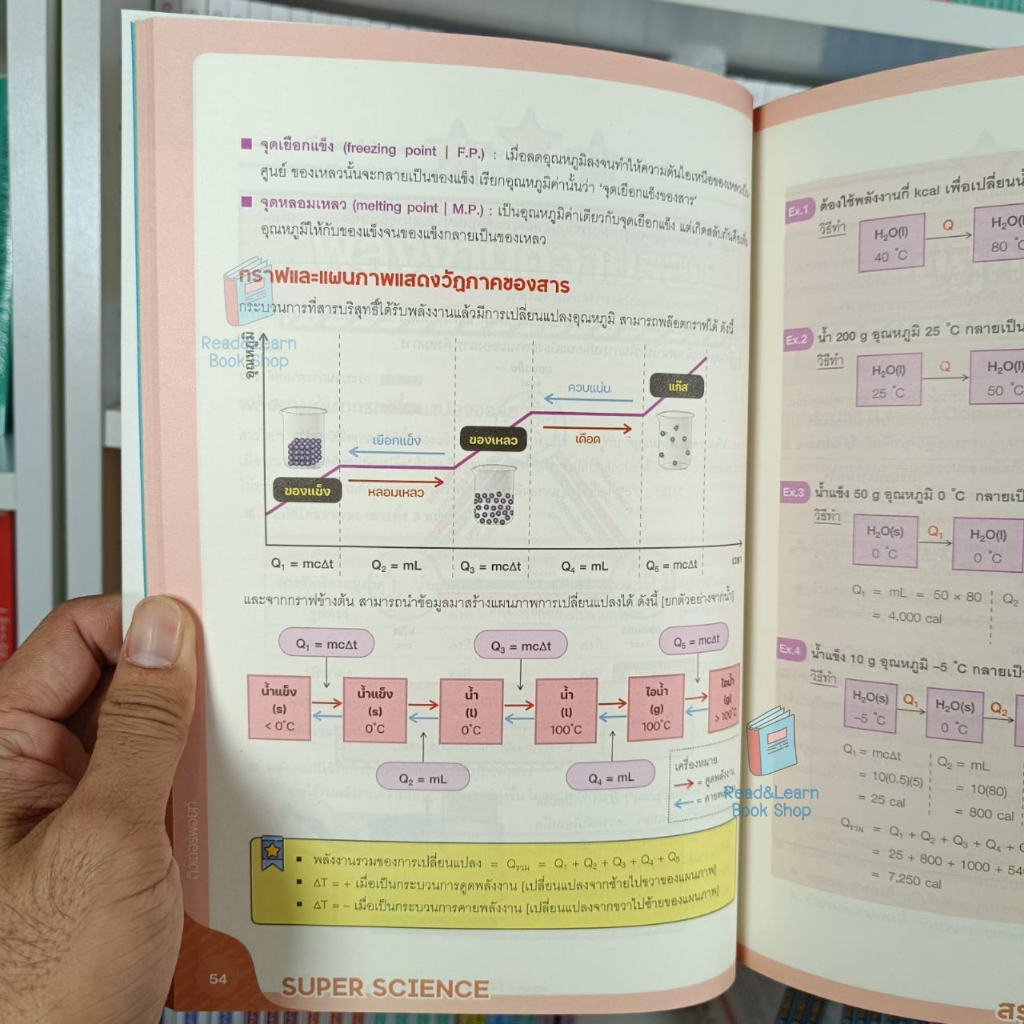 ■ จุดเยือกแข็ง (freezing point | F.P.) : เมื่อลดอุณหภูมิลงจนทำให้ความดันไอเหนือของเหลวเป็น
ศูนย์ ของเหลวนั้นจะกลายเป็นของแข็ง เรียกอุณหภูมิค่านั้นว่า 'จุดเยือกแข็งของสาร'
■ จุดหลอมเหลว (melting point | M.P.) : เป็นอุณหภูมิค่าเดียวกับจุดเยือกแข็ง แต่เกิดสลับกันคือเพิ่ม
อุณหภูมิให้กับของแข็งจนของแข็งกลายเป็นของเหลว
กราฟและแผนภาพแสดงวัฏภาคของสาร
กระบวนการที่สารบริสุทธิ์ได้รับพลังงานแล้วมีการเปลี่ยนแปลงอุณหภูมิ สามารถพล๊อตกราฟได้ ดังนี้
Read&Learn
Book Shop
อุณหภูมิ
ควบแน่น
แก๊ส
เยือกแข็ง
ของเหลว
เดือด
ของแข็ง
หลอมเหลว
เวลา
Q₁ = mcΔt
Q₂ = mL
Q₃ = mcΔt
Q₄ = mL
Q₅ = mcΔt
และจากกราฟข้างต้น สามารถนำข้อมูลมาสร้างแผนภาพการเปลี่ยนแปลงได้ ดังนี้ [ยกตัวอย่างจากน้ำ]
Q₁ = mcΔt
Q₃ = mcΔt
Q₅ = mcΔt
น้ำแข็ง
(s)
< 0°C
น้ำแข็ง
(s)
0°C
น้ำ
(l)
0°C
น้ำ
(l)
100°C
ไอน้ำ
(g)
100°C
ไอน้ำ
(g)
> 100°C
Q₂ = mL
Q₄ = mL
เครื่องหมาย
→ = ดูดพลังงาน
← = คายพลังงาน
▪ พลังงานรวมของการเปลี่ยนแปลง = Qรวม = Q₁ + Q₂ + Q₃ + Q₄ + Q₅
▪ ΔT = + เมื่อเป็นกระบวนการดูดพลังงาน [เปลี่ยนแปลงจากซ้ายไปขวาของแผนภาพ]
▪ ΔT = − เมื่อเป็นกระบวนการคายพลังงาน [เปลี่ยนแปลงจากขวาไปซ้ายของแผนภาพ]
54
SUPER SCIENCE
Ex.1 ต้องใช้พลังงานกี่ kcal เพื่อเปลี่ยน
วิธีทำ
H₂O(l)
40 °C
Q
80 °C
Ex.2 น้ำ 200 g อุณหภูมิ 25 °C กลายเป็น
วิธีทำ
H₂O(l)
25 °C
Q
H₂O(l)
50 °C
Ex.3 น้ำแข็ง 50 g อุณหภูมิ 0 °C
วิธีทำ
H₂O(s)
0 °C
Q₁
H₂O(l)
0 °C
Q₁ = mL = 50 × 80
= 4,000 cal
Q₂
Ex.4 น้ำแข็ง 10 g อุณหภูมิ −5 °C
วิธีทำ
H₂O(s)
−5 °C
Q₁
H₂O(s)
0 °C
Q₂
Q₁ = mcΔt
= 10(0.5)(5)
= 25 cal
Q₂ = mL
= 10(80)
= 800 cal
Read&Learn
Book Shop
Qรวม = Q₁ + Q₂ + Q₃ + Q₄ +
= 25 + 800 + 1000 +
= 7,250 cal